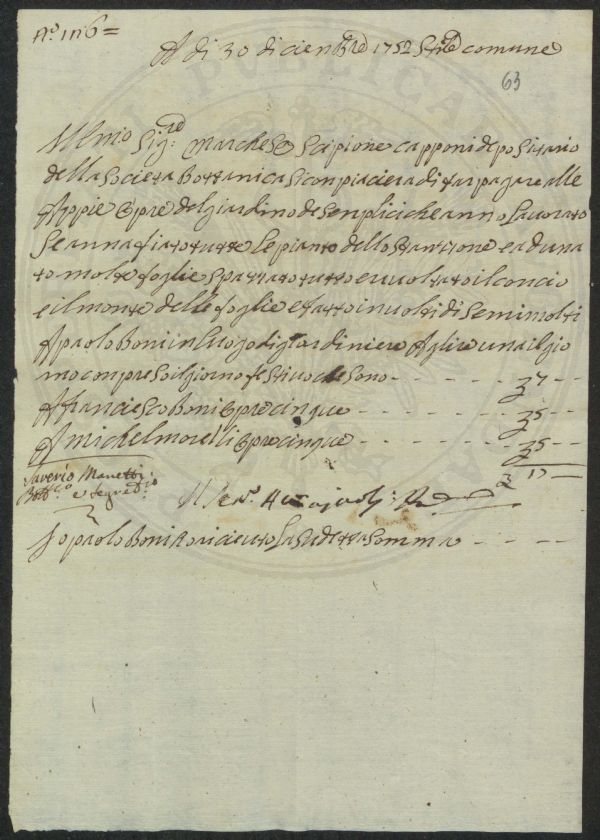 No 116 =
A di 30 diciembre 1752 stile comune
63
Illmo Sigre Marchese Scipione capponi depositario
della Societa Bottanica Si conpiacera di far pagare alle
Appie Opre del giardino de Senplici che anno Lavorato
Se annafiato tutte le piante dello Stanzone e aduna
to molte foglie Spazzato tutto e vuoltato il concio
e il monte delle foglie e fatto involti di Semi molti
A paolo Boni in luogo di giardiniere A lire una il gio
rno conpreso il giorno festivo che sono - - - - - - £ 7 - -
A franciesco Boni Opre cinque - - - - - - £ 5 - -
A michel morelli Opre cinque - - - - - - £ 5 - -
£ 17 -
Saverio Manetti
Bottco e Segretrio
Io paolo Boni o ricieuto La Sudetta Somma - - - -